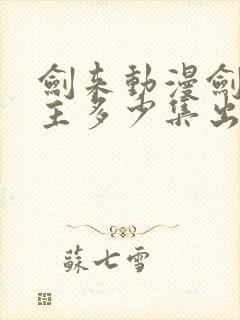 劍来動漫劍
主多少集出
蘇七雪